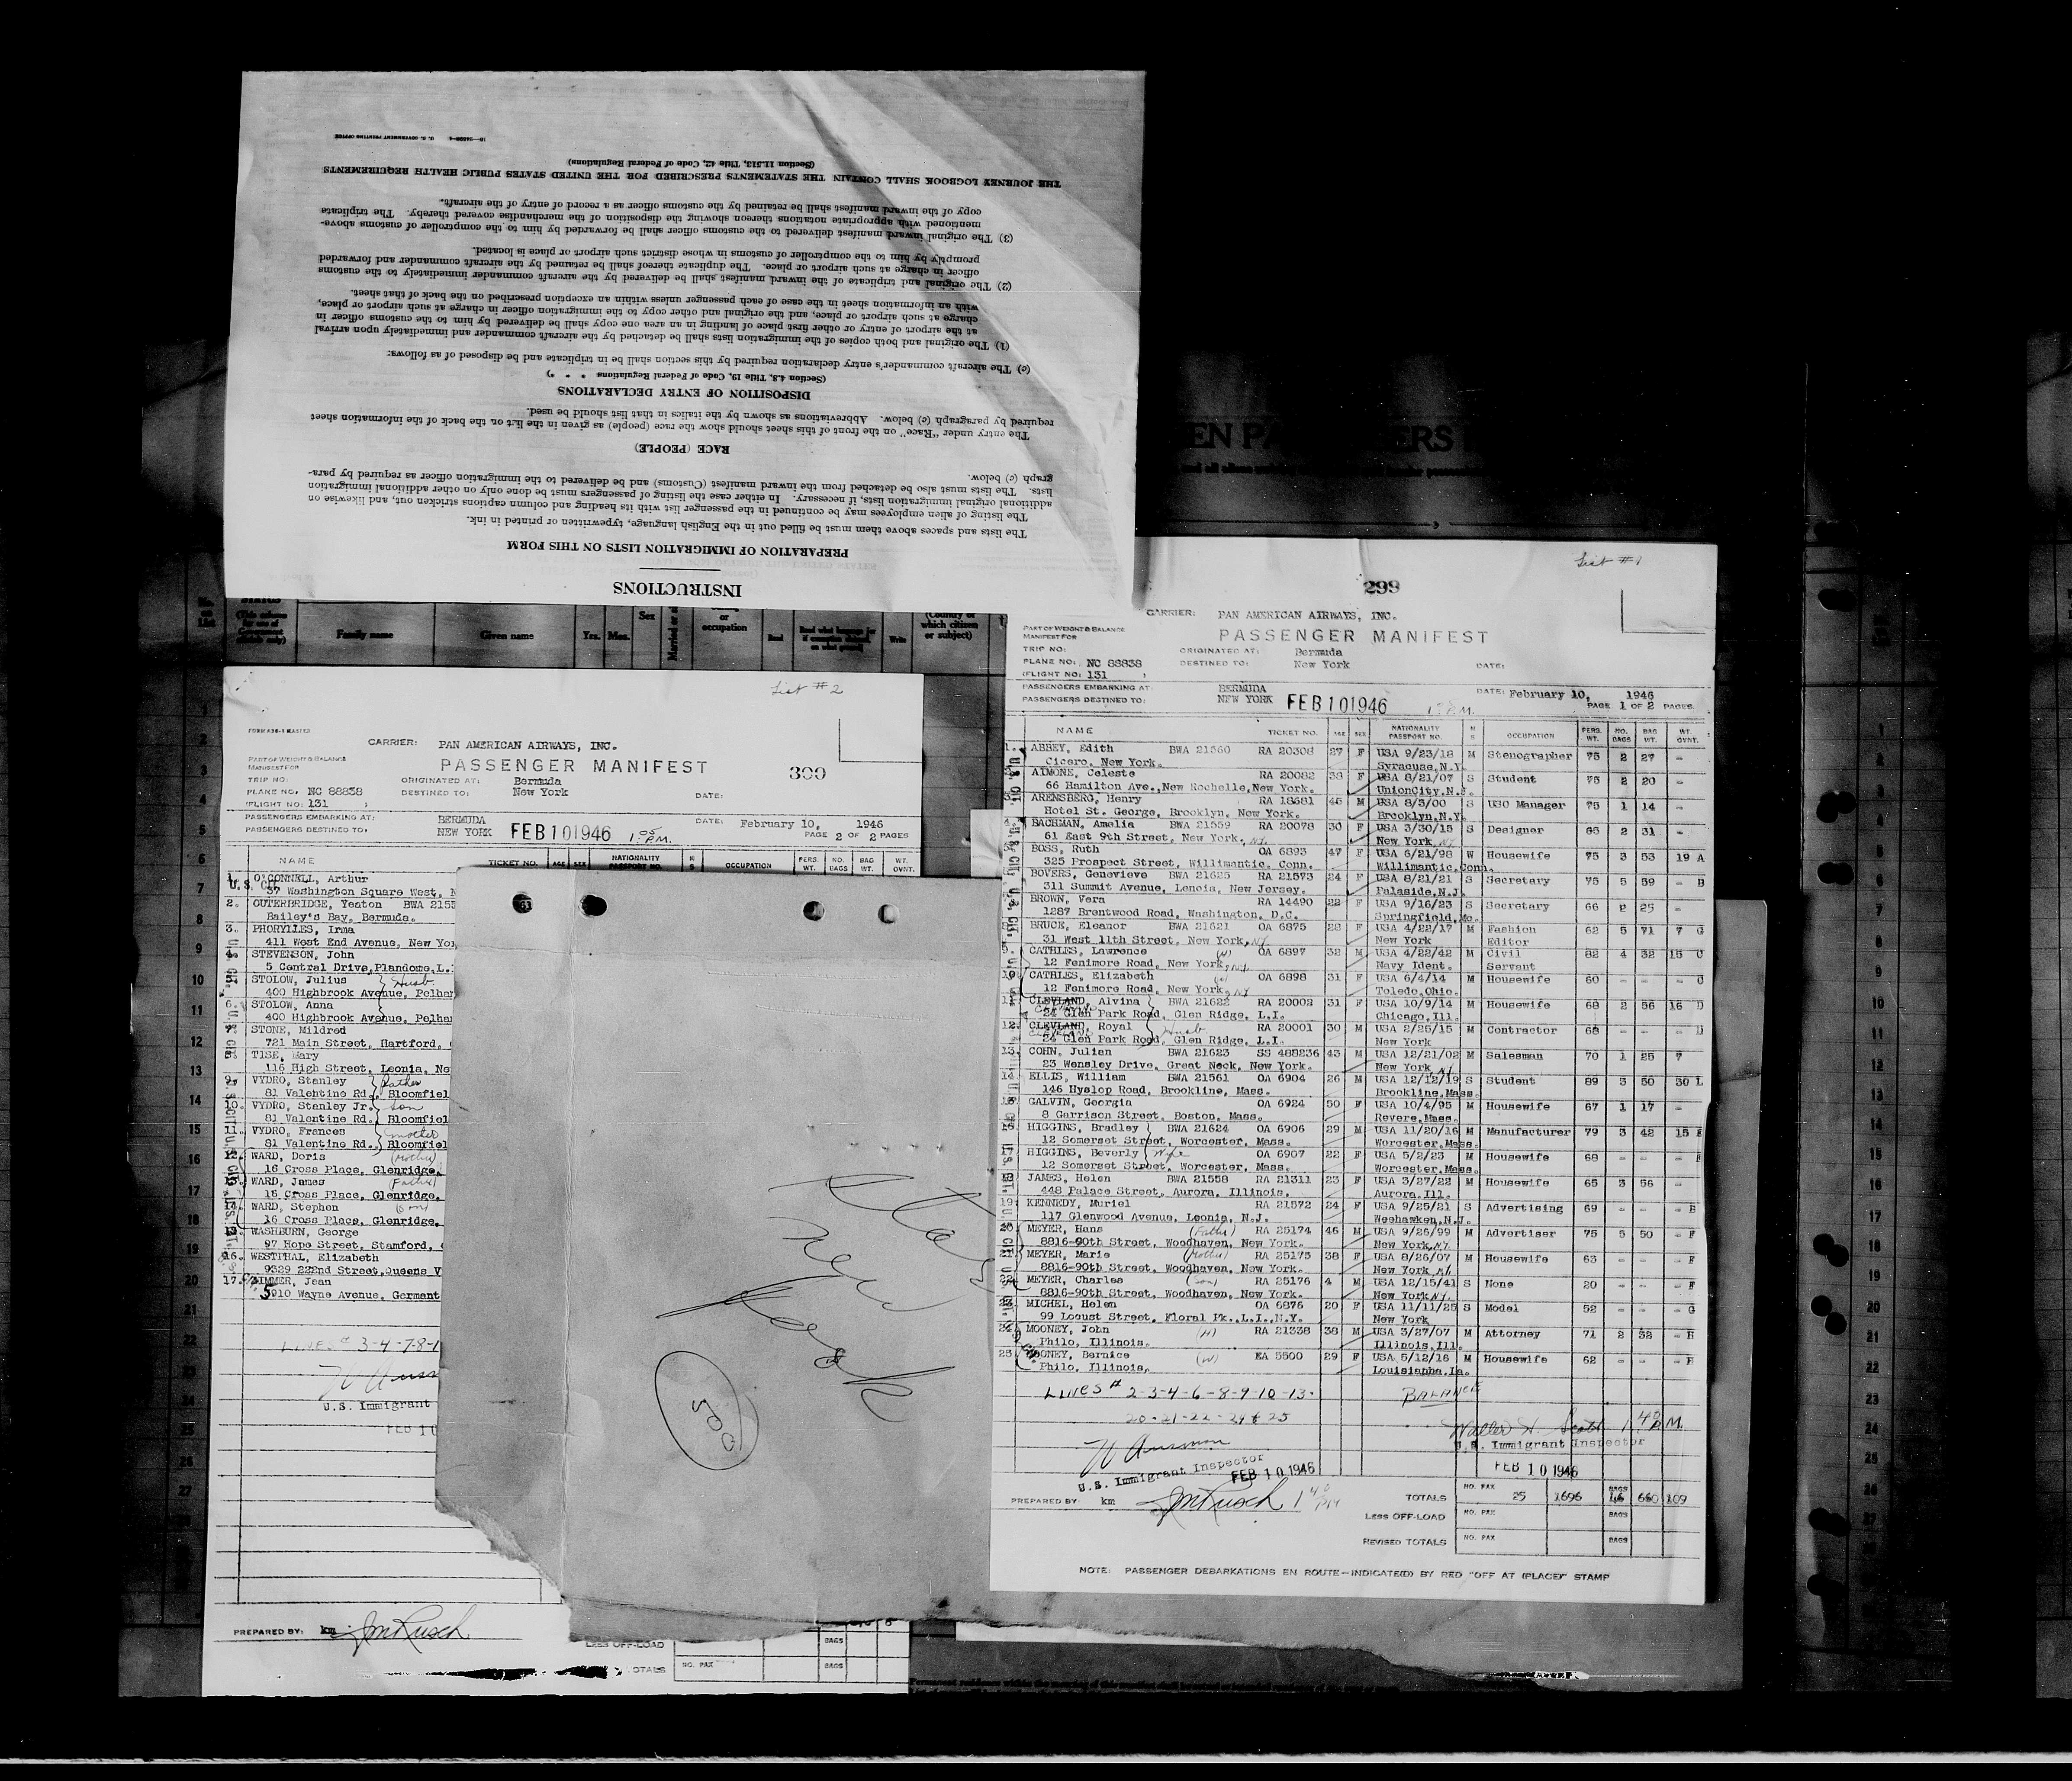 INSTRUCTIONS
PREPARATION OF IMMIGRATION LISTS ON THIS FORM
The lists and spaces above them must be filled out in the English language, typewritten or printed in ink.
The listing of alien employees may be continued in the passenger list with its heading and column captions stricken out, and likewise on
additional original immigration lists, if necessary. In either case the listing of passengers must be done only on other additional immigration
lists. The lists must also be detached from the inward manifest (Customs) and be delivered to the immigration officer as required by para-
graph (c) below.
RACE (PEOPLE)
The entry under "Race" on the front of this sheet should show the race (people) as given in the list on the back of the information sheet
required by paragraph (c) below. Abbreviations as shown by the italics in that list should be used.
DISPOSITION OF ENTRY DECLARATIONS
(Section 4.3, Title 19, Code of Federal Regulations * * *)
(c) The aircraft commander's entry declaration required by this section shall be in triplicate and be disposed of as follows:
(1) The original and both copies of the immigration lists shall be detached by the aircraft commander and immediately upon arrival
at the airport of entry or other first place of landing in an area one copy shall be delivered by him to the customs officer in
charge at such airport or place, and the original and other copy to the immigration officer in charge at such airport or place,
with an information sheet in the case of each passenger unless within an exception prescribed on the back of that sheet.
(2) The original and triplicate of the inward manifest shall be delivered by the aircraft commander immediately to the customs
officer in charge at such airport or place. The duplicate thereof shall be retained by the aircraft commander and forwarded
promptly by him to the comptroller of customs in whose district such airport or place is located.
(3) The original inward manifest delivered to the customs officer shall be forwarded by him to the comptroller of customs above-
mentioned with appropriate notations thereon showing the disposition of the merchandise covered thereby. The triplicate
copy of the inward manifest shall be retained by the customs officer as a record of entry of the aircraft.
THE JOURNEY LOGBOOK SHALL CONTAIN THE STATEMENTS PRESCRIBED FOR THE UNITED STATES PUBLIC HEALTH REQUIREMENTS
(Section 11.513, Title 42, Code of Federal Regulations)
U. S. GOVERNMENT PRINTING OFFICE
Family name Given name Yrs. Mos. Sex or occupation Read Write (Country of which citizen or subject)
List #2
CARRIER: PAN AMERICAN AIRWAYS, INC.
PART OF WEIGHT & BALANCE MANIFEST FOR
PASSENGER MANIFEST 300
TRIP NO: ORIGINATED AT: Bermuda
PLANE NO. NC 88838 DESTINED TO: New York DATE:
(FLIGHT NO: 131 )
PASSENGERS EMBARKING AT: BERMUDA DATE: February 10, 1946
PASSENGERS DESTINED TO: NEW YORK FEB 10 1946 1 05 P.M. PAGE 2 OF 2 PAGES
NAME TICKET NO. AGE SEX NATIONALITY PASSPORT NO. M S OCCUPATION PERS. WT. NO. BAGS BAG WT. WT. OVNT.
1. O'CONNELL, Arthur
37 Washington Square West, N
2. OUTERBRIDGE, Yeaton BWA 2155
Bailey's Bay, Bermuda.
3. PHORYLLES, Irma
411 West End Avenue, New Yo
4. STEVENSON, John
5 Central Drive,Plandome,L.
STOLOW, Julius Husb
400 Highbrook Avenue, Pelha
6. STOLOW, Anna
400 Highbrook Avenue, Pelha
7. STONE, Mildred
721 Main Street, Hartford,
TISE, Mary
116 High Street, Leonia, Ne
9. VYDRO, Stanley Father
81 Valentine Rd., Bloomfiel
10. VYDRO, Stanley Jr. Son
81 Valentine Rd., Bloomfiel
11. VYDRO, Frances mother
81 Valentine Rd., Bloomfiel
12. WARD, Doris (Mother)
16 Cross Place, Glenridge,
WARD, James (Father)
16 Cross Place, Glenridge,
14. WARD, Stephen (Son)
16 Cross Place, Glenridge,
WASHBURN, George
97 Hope Street, Stamford,
16. WESTPHAL, Elizabeth
9329 222nd Street,Queens V
17. ZIMMER, Jean
5910 Wayne Avenue, Germant
LINES # 3-4-7-8-1
U.S. Immigrant
FEB 10
PREPARED BY: km JmRusch
LESS OFF-LOAD
TOTALS
NO. PAX BAGS
Slow
New
York
500
List #1
299
CARRIER: PAN AMERICAN AIRWAYS, INC.
PART OF WEIGHT & BALANCE MANIFEST FOR
PASSENGER MANIFEST
TRIP NO: ORIGINATED AT: Bermuda
PLANE NO: NC 88838 DESTINED TO: New York DATE:
(FLIGHT NO: 131 )
PASSENGERS EMBARKING AT: BERMUDA DATE: February 10, 1946
PASSENGERS DESTINED TO: NEW YORK FEB 10 1946 P.M. PAGE 1 OF 2 PAGES
NAME TICKET NO. AGE SEX NATIONALITY PASSPORT NO. M S OCCUPATION PERS. WT. NO. BAGS BAG WT. WT. OVNT.
1. ABBEY, Edith BWA 21560 RA 20308 27 F USA 9/23/18 M Stenographer 75 2 27 -
Cicero, New York. Syracuse,N.Y.
AIMONE, Celeste RA 20082 38 F USA 8/21/07 S Student 75 2 20 -
66 Hamilton Ave.,New Rochelle,New York. UnionCity,N.J.
ARENSBERG, Henry RA 18681 45 M USA 8/3/00 S USO Manager 75 1 14 -
Hotel St. George, Brooklyn, New York. Brooklyn,N.Y.
BACHMAN, Amelia BWA 21559 RA 20078 30 F USA 3/30/15 S Designer 65 2 31 -
61 East 9th Street, New York. New York
BOSS, Ruth OA 6893 47 F USA 6/21/98 W Housewife 75 3 53 19 A
325 Prospect Street, Willimantic, Conn. Willimantic,Conn.
BOVERS, Genevieve BWA 21625 RA 21573 24 F USA 8/21/21 S Secretary 75 5 59 - B
311 Summit Avenue, Lenoia, New Jersey. Palaside,N.J.
BROWN, Vera RA 14490 22 F USA 9/16/23 S Secretary 66 2 25 -
1287 Brentwood Road, Washington, D.C. Springfield,Mo.
BRUCE, Eleanor BWA 21621 OA 6875 28 F USA 4/22/17 M Fashion Editor 62 5 71 7 G
31 West 11th Street, New York, NY New York
CATHLES, Lawrence (H) OA 6897 32 M USA 4/22/42 M Civil Servant 82 4 32 15 C
12 Fenimore Road, New York, NY Navy Ident.
CATHLES, Elizabeth (W) OA 6898 31 F USA 6/4/14 M Housewife 60 - - C
12 Fenimore Road, New York, NY Toledo,Ohio.
CLEVLAND, Alvina BWA 21622 RA 20002 31 F USA 10/9/14 M Housewife 68 2 56 16 D
24 Glen Park Road, Glen Ridge, L.I. Chicago,Ill.
12. CLEVLAND, Royal Husb RA 20001 30 M USA 2/25/15 M Contractor 68 - - D
24 Glen Park Road, Glen Ridge, L.I. New York
13. COHN, Julian BWA 21623 SS 488236 43 M USA 12/21/02 M Salesman 70 1 25 7
23 Wensley Drive, Great Neck, New York. New York, NY
14. ELLIS, William BWA 21561 OA 6904 26 M USA 12/12/19 S Student 89 3 50 30 L
146 Hyslop Road, Brookline, Mass. Brookline,Mass.
GALVIN, Georgia OA 6924 50 F USA 10/4/95 M Housewife 67 1 17 -
8 Garrison Street, Boston, Mass. Revere,Mass.
HIGGINS, Bradley BWA 21624 OA 6906 29 M USA 11/20/16 M Manufacturer 79 3 42 15 E
12 Somerset Street, Worcester, Mass. Worcester,Mass.
17 HIGGINS, Beverly Wife OA 6907 22 F USA 5/2/23 M Housewife 68 - - - E
12 Somerset Street, Worcester, Mass. Worcester,Mass.
JAMES, Helen BWA 21558 RA 21311 23 F USA 3/27/22 M Housewife 65 3 56 -
448 Palace Street, Aurora, Illinois. Aurora,Ill.
19. KENNEDY, Muriel RA 21572 24 F USA 9/25/21 S Advertising 69 - - - B
117 Glenwood Avenue, Leonia, N.J. Weehawken,N.J.
MEYER, Hans (Father) RA 25174 46 M USA 9/26/99 M Advertiser 75 5 50 - F
8816-90th Street, Woodhaven, New York. New York, NY
21. MEYER, Marie (Mother) RA 25175 38 F USA 8/26/07 M Housewife 63 - - - F
8816-90th Street, Woodhaven, New York. New York, NY
22. MEYER, Charles (Son) RA 25176 4 M USA 12/15/41 S None 20 - - - F
8816-90th Street, Woodhaven, New York. New York NY.
MICHEL, Helen OA 6876 20 F USA 11/11/25 S Model 52 - - - G
99 Locust Street, Floral Pk.,L.I.,N.Y. New York
MOONEY, John (H) RA 21338 38 M USA 3/27/07 M Attorney 71 2 32 - H
Philo, Illinois. Illinois,Ill.
25. MOONEY, Bernice (W) EA 5500 29 F USA 5/12/16 M Housewife 62 - - - H
Philo, Illinois. Louisianna,La.
LINES # 2-3-4-6-8-9-10-13- BALANCE
20-21-22-24 & 25
Walter H. Scott 1 40 P.M.
U.S. Immigrant Inspector U.S. Immigrant Inspector
FEB 10 1946 FEB 10 1946
PREPARED BY: km JmRusch 1 40 PM
TOTALS NO. PAX 25 1696 BAGS 46 660 109
LESS OFF-LOAD NO. PAX BAGS
REVISED TOTALS NO. PAX BAGS
NOTE: PASSENGER DEBARKATIONS EN ROUTE—INDICATE(D) BY RED "OFF AT (PLACE)" STAMP